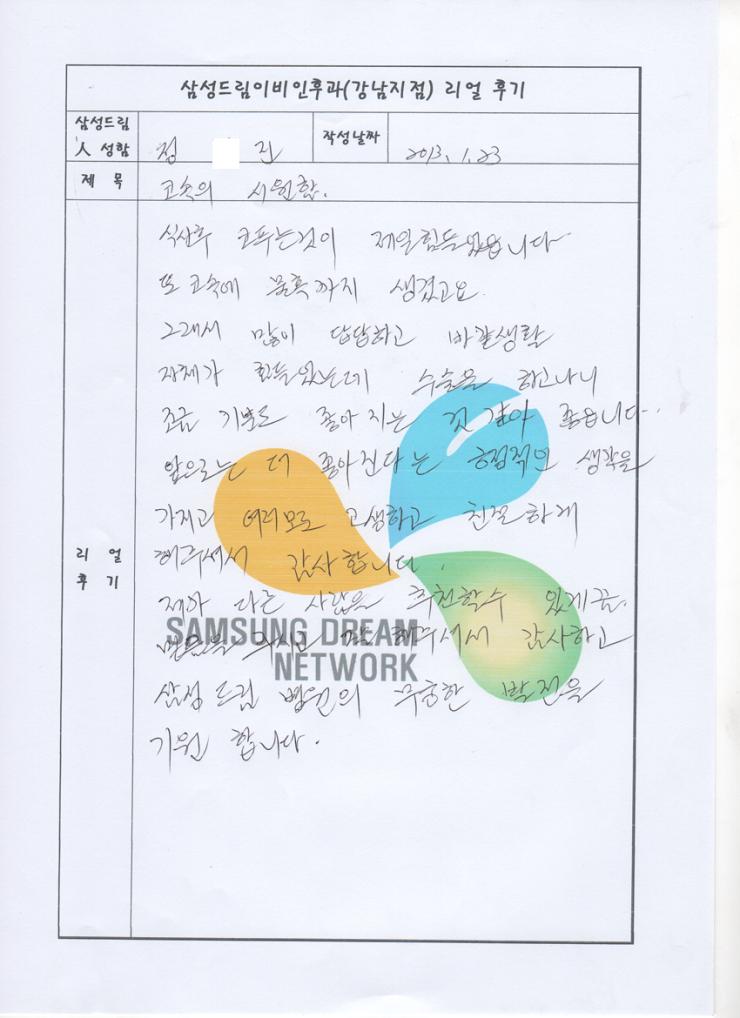 삼성드림이비인후과(강남지점) 리얼 후기
삼성드림
人 성함
정 진
작성날짜
2013. 1. 23
제 목
코속의 시원함.
식사후 코푸는것이 제일힘들었읍니다
또 코속에 물혹까지 생겼고요.
그래서 많이 답답하고 바깥생활
자체가 힘들었는데 수술을 하고나니
조금 기분도 좋아지는 것 같아 좋습니다.
앞으로는 더 좋아진다는 긍정적인 생각을
가지고 여러모로 고생하고 친절하게
해주셔서 감사합니다.
제가 다른 사람을 추천할수 있게끔.
주시고 해주셔서 감사하고
삼성 드림 병원의 무궁한 발전을
기원 합니다.
리 얼
후 기
SAMSUNG DREAM
NETWORK